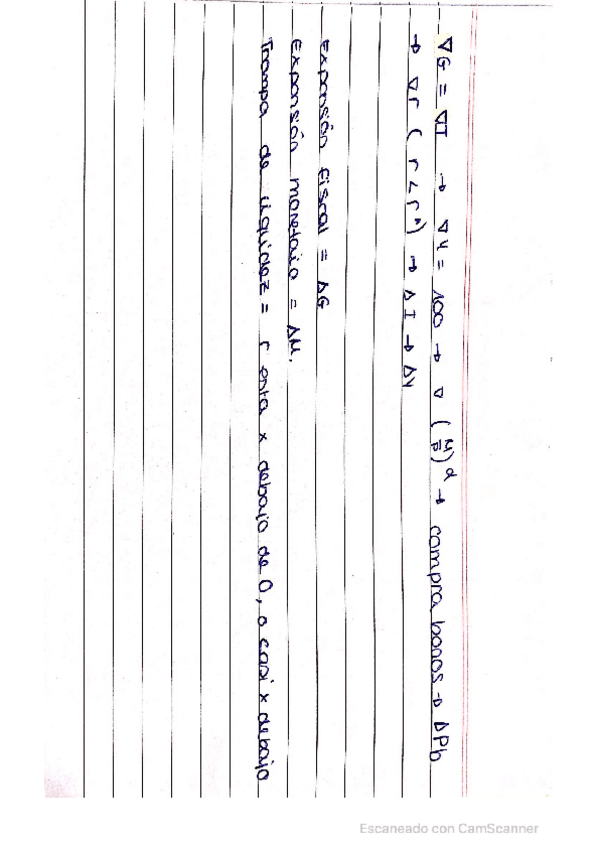 ∇G = ∇T → ∇Y = 100 → ∇ (M/P)^d → compra bonos → ΔPb
→ ∇r (r < r*) → ΔI → ΔY
Expansión fiscal = ΔG
Expansión monetaio = ΔM.
Trampa de liquidez = r enta x debajo de 0, o casi x debajo
Escaneado con CamScanner